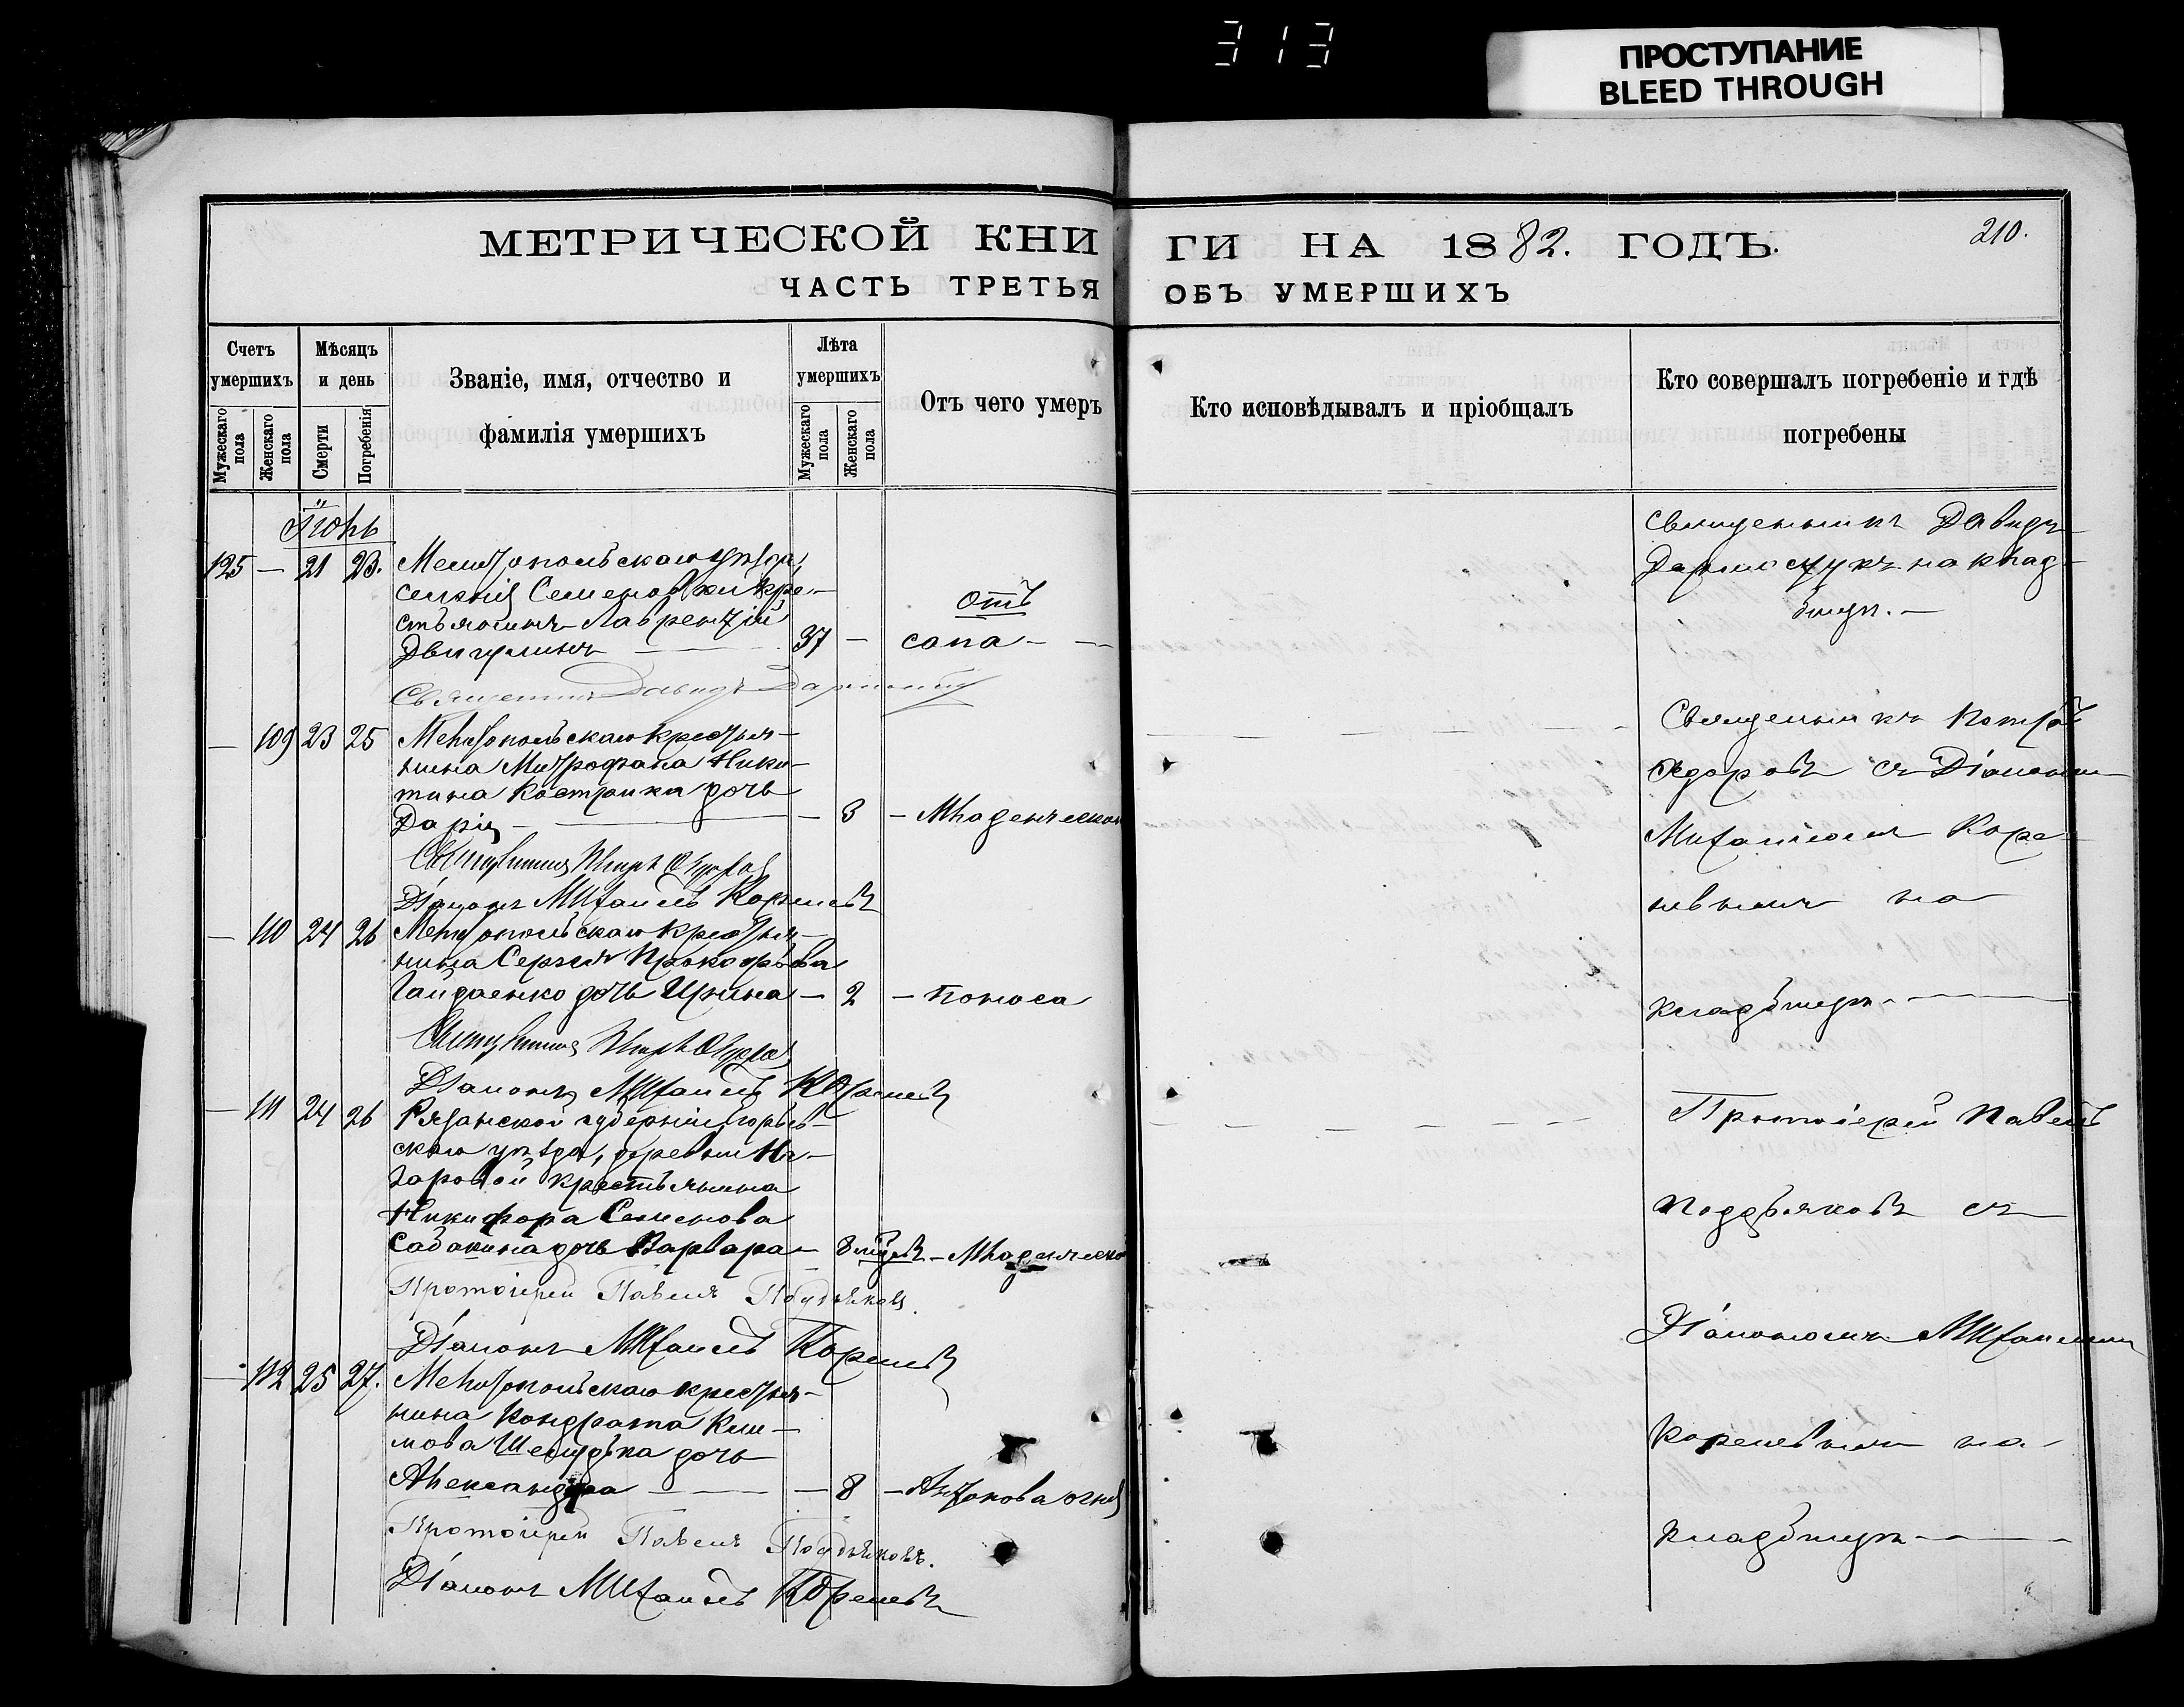 313
ПРОСТУПАНИЕ
BLEED THROUGH
МЕТРИЧЕСКОЙ КНИ
ГИ НА 1882. ГОДЪ.
210.
ЧАСТЬ ТРЕТЬЯ
ОБЪ УМЕРШИХЪ
Счетъ умершихъ
Мужескаго пола
Женскаго пола
Мѣсяцъ и день
Смерти
Погребенія
Званіе, имя, отчество и
фамилія умершихъ
Лѣта умершихъ
Мужескаго пола
Женскаго пола
Отъ чего умеръ
Кто исповѣдывалъ и пріобщалъ
Кто совершалъ погребеніе и гдѣ
погребены
Іюнь
125 — 21 23. Мелитопольскаго уѣзда,
селенія Семеновки кре-
стьянинъ Лаврентій
37 —
отъ
сапа —
Священникъ Давидъ
на клад-
бищѣ. —
Священникъ Давидъ
— 109 23 25 Мелитопольскаго крестья-
нина Митрофана Ники-
тина Кострика дочь
Дарія — — 3 — Младенческой
Священникъ Петръ
Діаконъ Михаилъ Кореневъ
Священникъ Петръ
съ Діакономъ
Михаиломъ Коре-
невымъ на
кладбищѣ —
— 110 24 26 Мелитопольскаго крестья-
нина Сергія Прокофьева
Гайдаенко дочь Ирина — 2 — Поноса
Священникъ Петръ
Діаконъ Михаилъ Кореневъ
— 111 24 26 Рязанской губерніи Егорьев-
скаго уѣзда, деревни На-
заровой крестьянина
Никифора Семенова
Собакина дочь Варвара — 8 мѣсяц. — Младенческой
Протоіерей Павелъ Поддьяковъ.
Діаконъ Михаилъ Кореневъ
Протоіерей Павелъ
Поддьяковъ съ
Діакономъ Михаиломъ
Кореневымъ на
кладбищѣ —
— 112 25 27. Мелитопольскаго крестья-
нина Кондрата Кли-
мова дочь
Александра — — 8 — Антонова огня
Протоіерей Павелъ Поддьяковъ.
Діаконъ Михаилъ Кореневъ